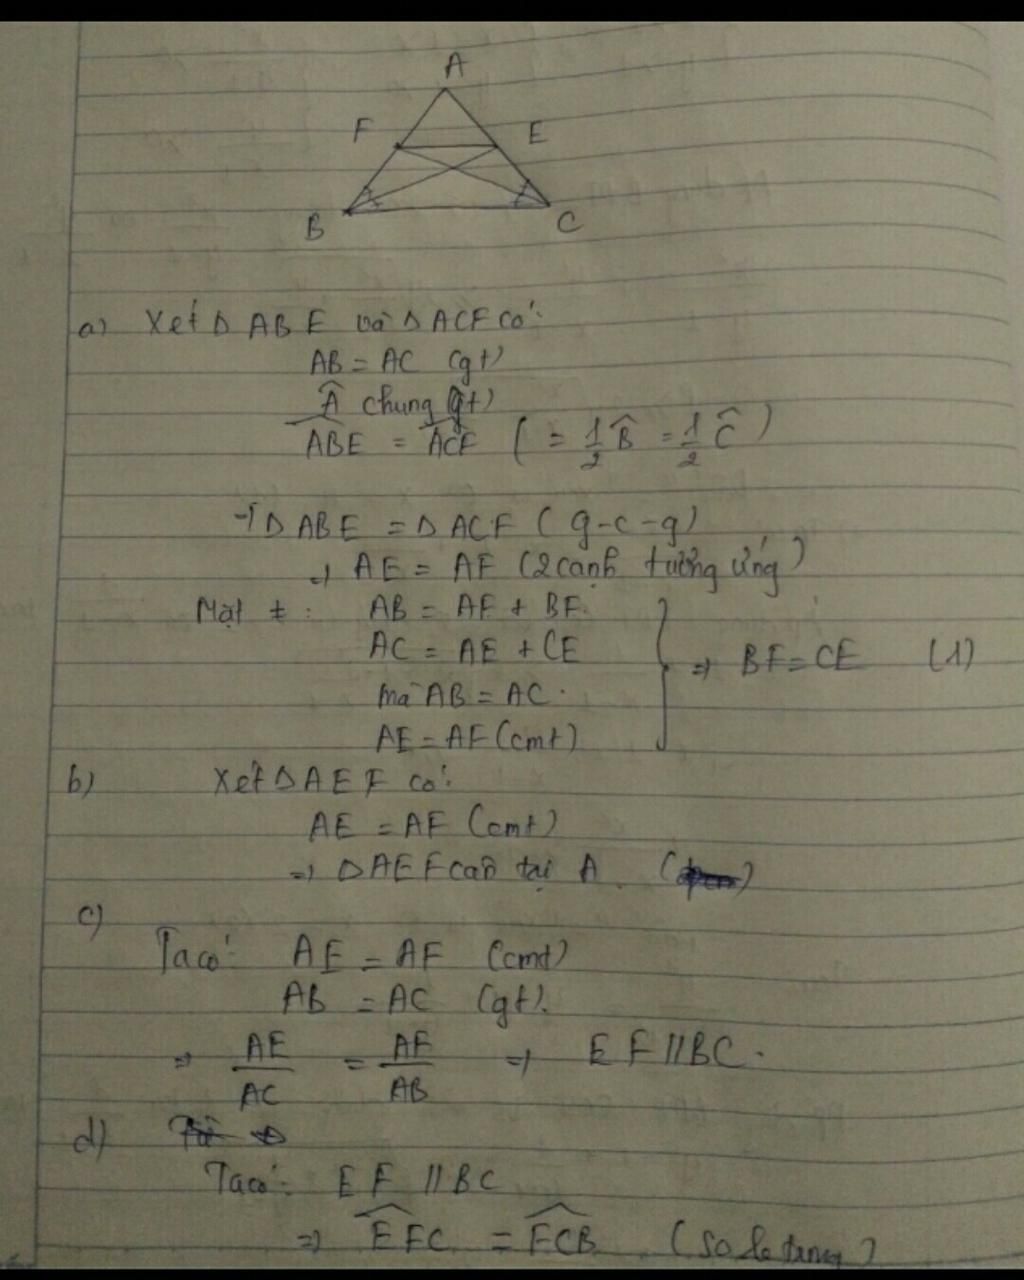 A
F E
B C
a) Xét Δ ABE và Δ ACF có:
AB = AC (gt)
Â chung (gt)
\widehat{ABE} = \widehat{ACF} ( = \frac{1}{2} \widehat{B} = \frac{1}{2} \widehat{C} )
⇒ Δ ABE = Δ ACF ( g-c-g)
⇒ AE = AF (2 cạnh tương ứng)
Mặt ≠ : AB = AF + BF.
AC = AE + CE ⇒ BF = CE (1)
mà AB = AC.
AE = AF (cmt)
b) Xét Δ AEF có:
AE = AF (cmt)
⇒ Δ AEF cân tại A. ( )
c)
Ta có: AE = AF (cmt)
AB = AC (gt).
⇒ \frac{AE}{AC} = \frac{AF}{AB} ⇒ EF // BC.
d)
Ta có: EF // BC
⇒ \widehat{EFC} = \widehat{FCB} (so le trong)